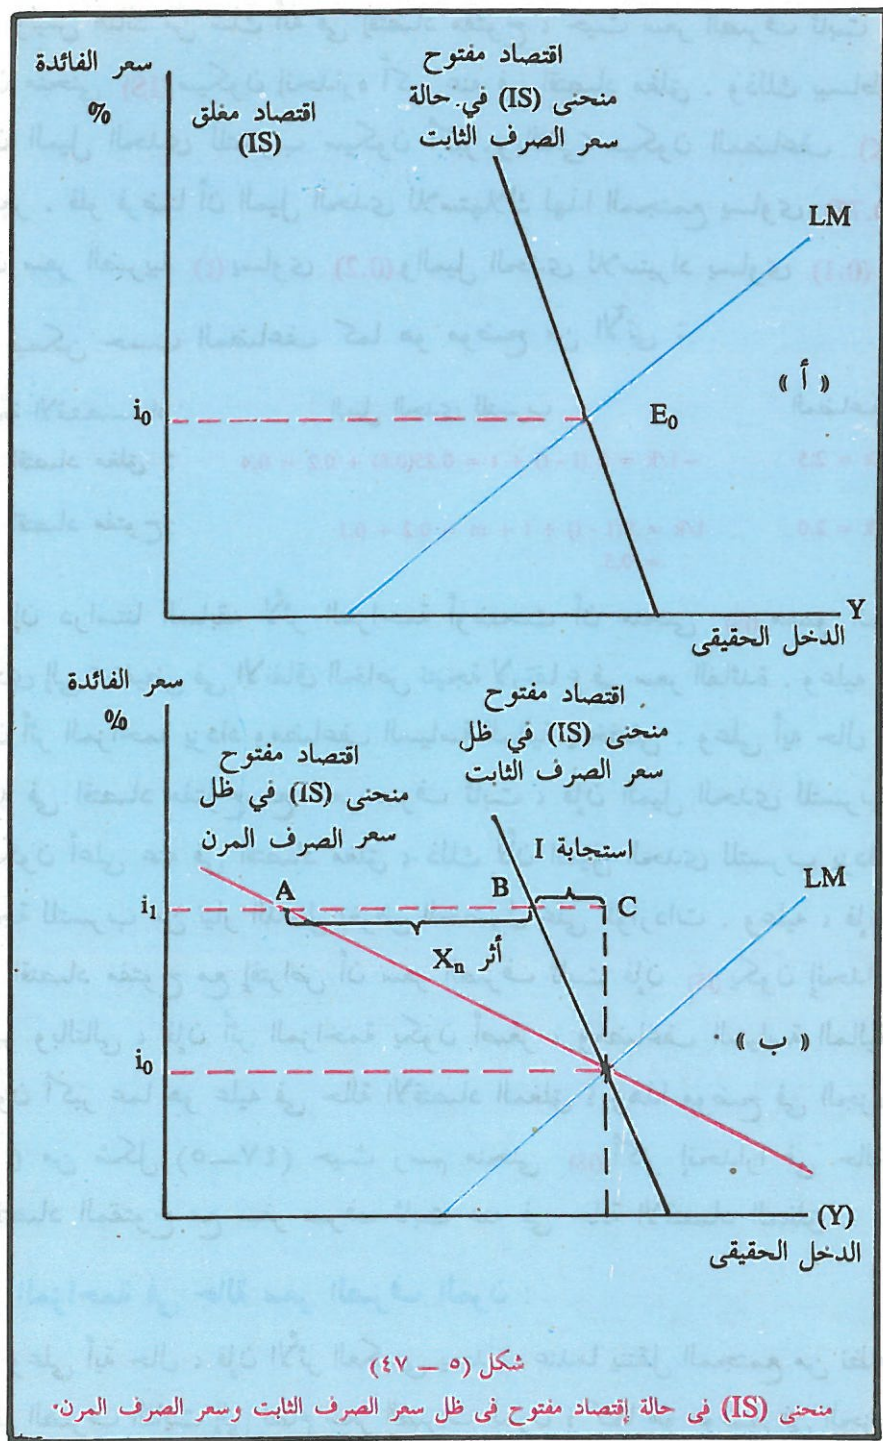 سعر الفائدة
%
اقتصاد مغلق
(IS)
اقتصاد مفتوح
منحنى (IS) في حالة
سعر الصرف الثابت
LM
« أ »
i0
E0
Y
الدخل الحقيقى
سعر الفائدة
%
اقتصاد مفتوح
منحنى (IS) في ظل
سعر الصرف الثابت
اقتصاد مفتوح
منحنى (IS) في ظل
سعر الصرف المرن
استجابة I
LM
i1
A
B
C
أثر Xn
« ب »
i0
(Y)
الدخل الحقيقى
شكل (٥ — ٤٧)
منحنى (IS) فى حالة إقتصاد مفتوح فى ظل سعر الصرف الثابت وسعر الصرف المرن.